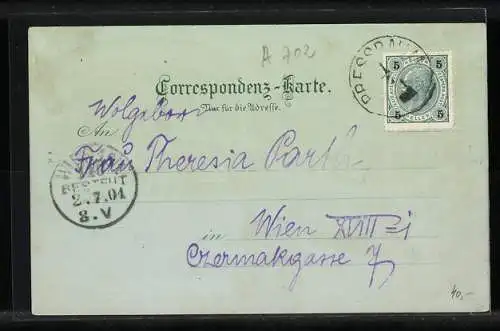 A 702
PRESSBAUM
5 5
5 5
Correspondenz-Karte.
Nur für die Adresse.
Wolgeboren
An
Frau Theresia
WIEN
BESTELLT
2.7.01
8.V
in Wien XVIII=i
Czermakgasse 7
40,-